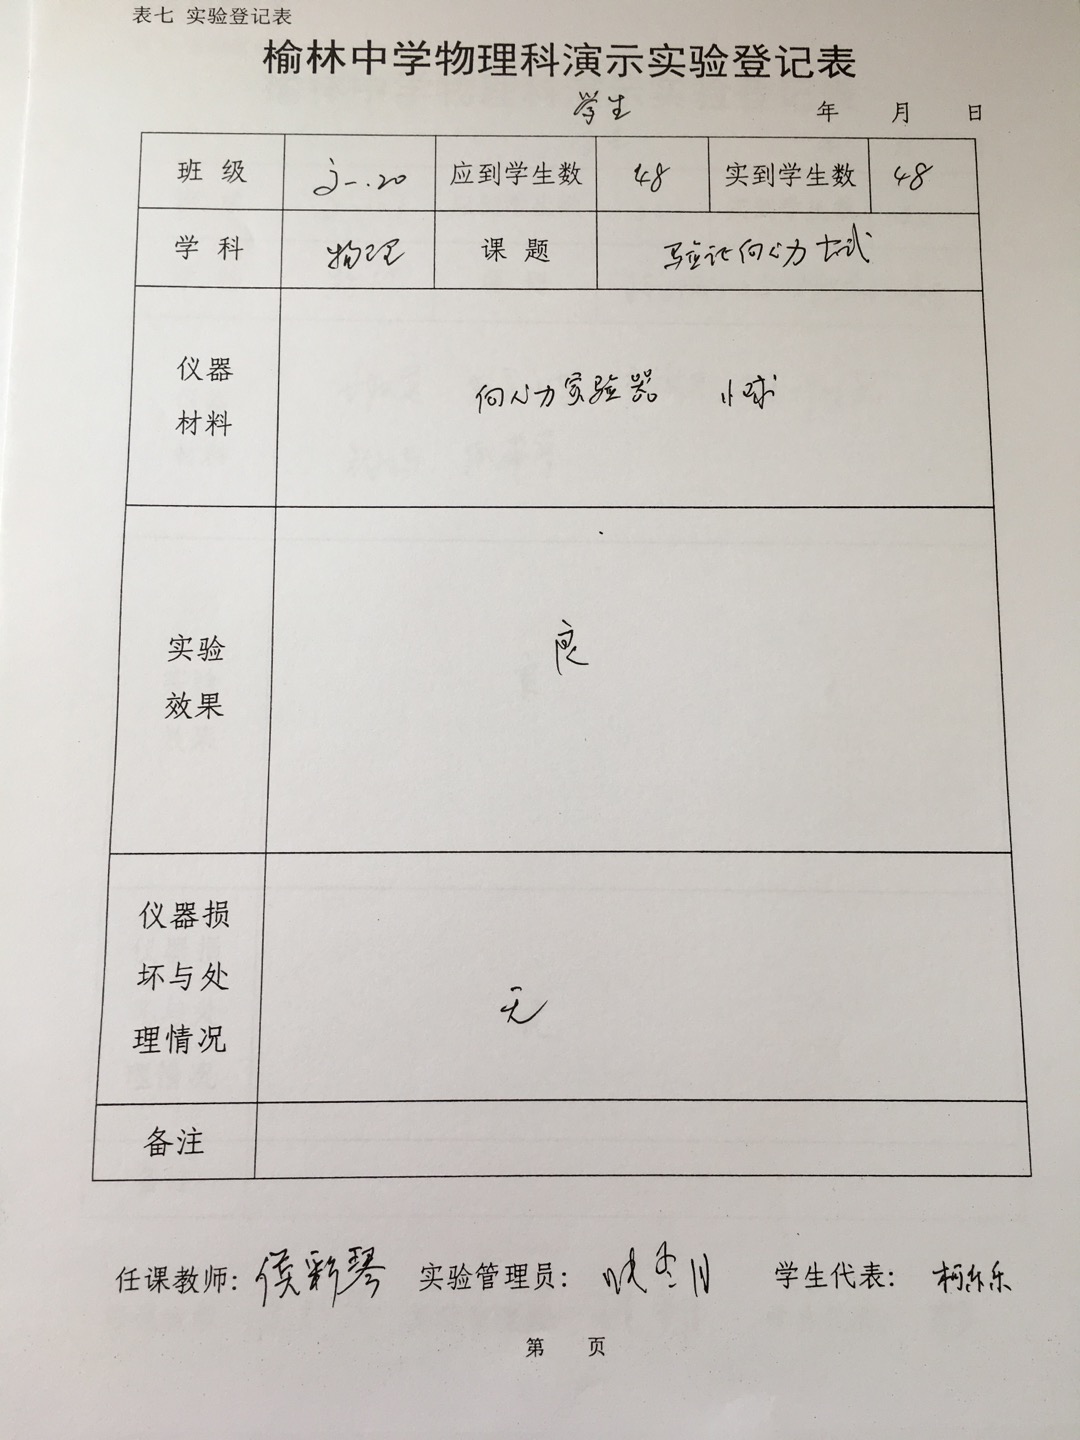 表七 实验登记表
榆林中学物理科演示实验登记表
学生 年 月 日
班 级 .20 应到学生数 48 实到学生数 48
学 科 物理 课 题 验证向心力公式
仪器 材料 向心力实验器 小球
实验 效果 良
仪器损 坏与处 理情况 无
备注
任课教师: 侯彩琴 实验管理员: 学生代表: 柯乐乐
第 页